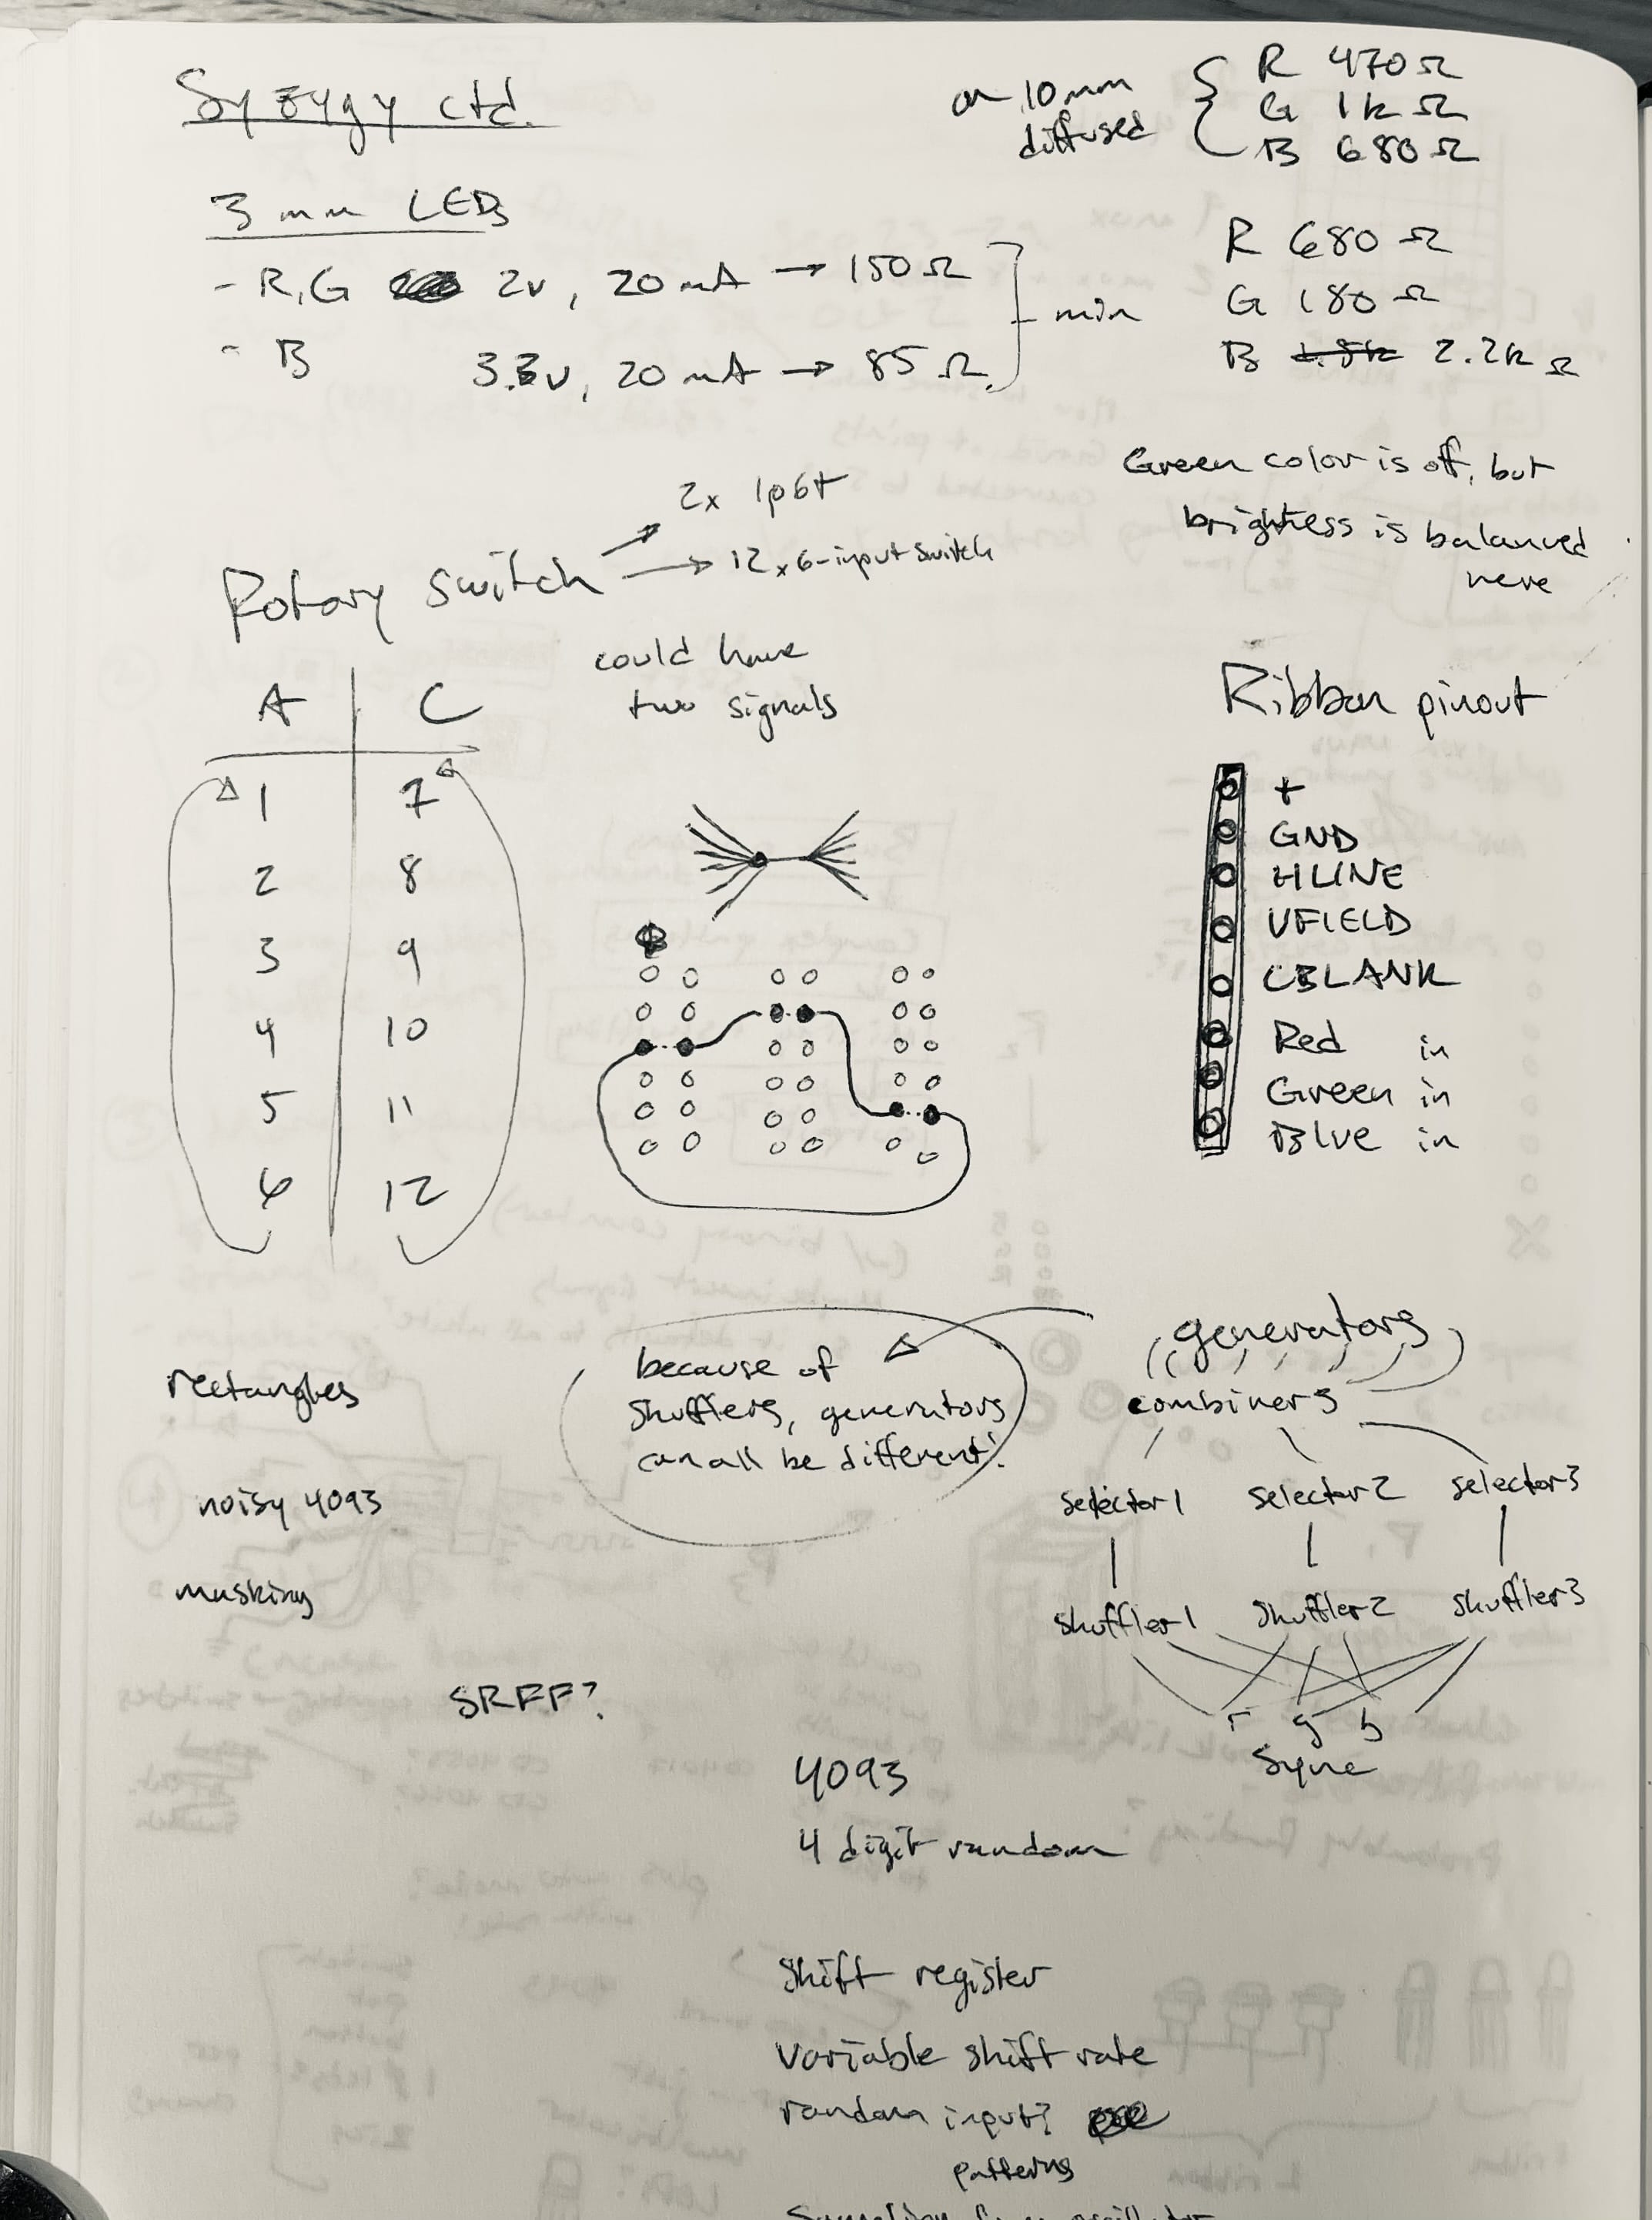 Syzygy ctd.
on 10mm
diffused
R 470Ω
G 1kΩ
B 680Ω
3mm LEDs
- R,G 2v, 20mA → 150Ω
- B 3.3v, 20mA → 85Ω
min
R 680Ω
G 180Ω
B 1.8k 2.2kΩ
Green color is off, but
brightness is balanced
here
Rotary switch
→ 2x 1p6t
→ 12x6-input switch
could have
two signals
A C
1 7
2 8
3 9
4 10
5 11
6 12
Ribbon pinout
+
GND
HLINE
VFIELD
CBLANK
Red in
Green in
Blue in
rectangles
noisy 4093
masking
SRFF?
because of
shufflers, generators
can all be different!
generators
combiners
selector1 selector2 selector3
shuffler1 shuffler2 shuffler3
r g b
sync
4093
4 digit random
shift register
variable shift rate
random input?
patterns